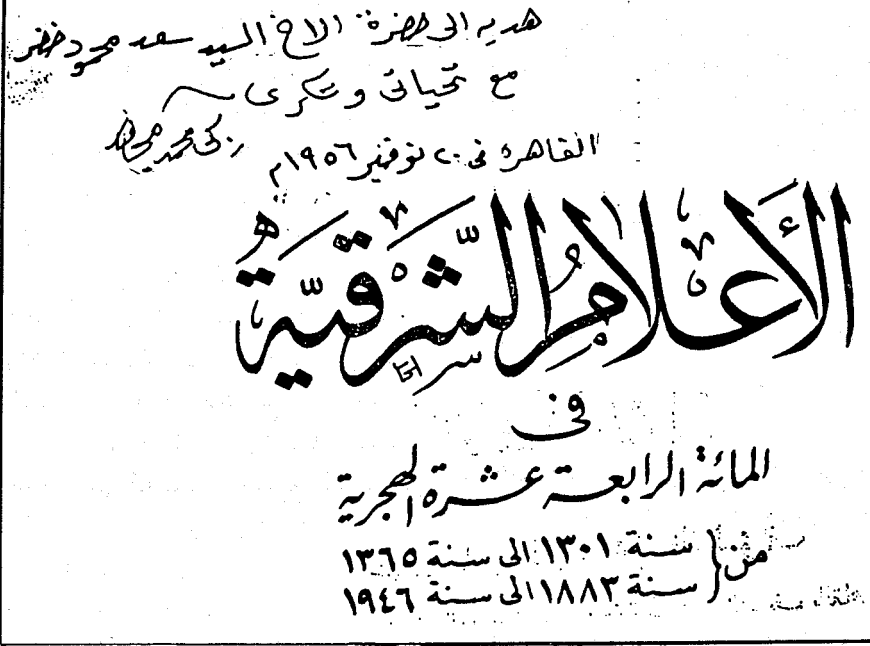 هديه الى حضرة الاخ السيد سعد محمود خضر
مع تحياتى وشكرى
زكى محمد مجاهد
القاهرة فى ٢٠ نوفمبر ١٩٥٦م
الأعلام الشرقية
فى
المائة الرابعة عشرة الهجرية
من { سنة ١٣٠١ الى سنة ١٣٦٥
سنة ١٨٨٣ الى سنة ١٩٤٦